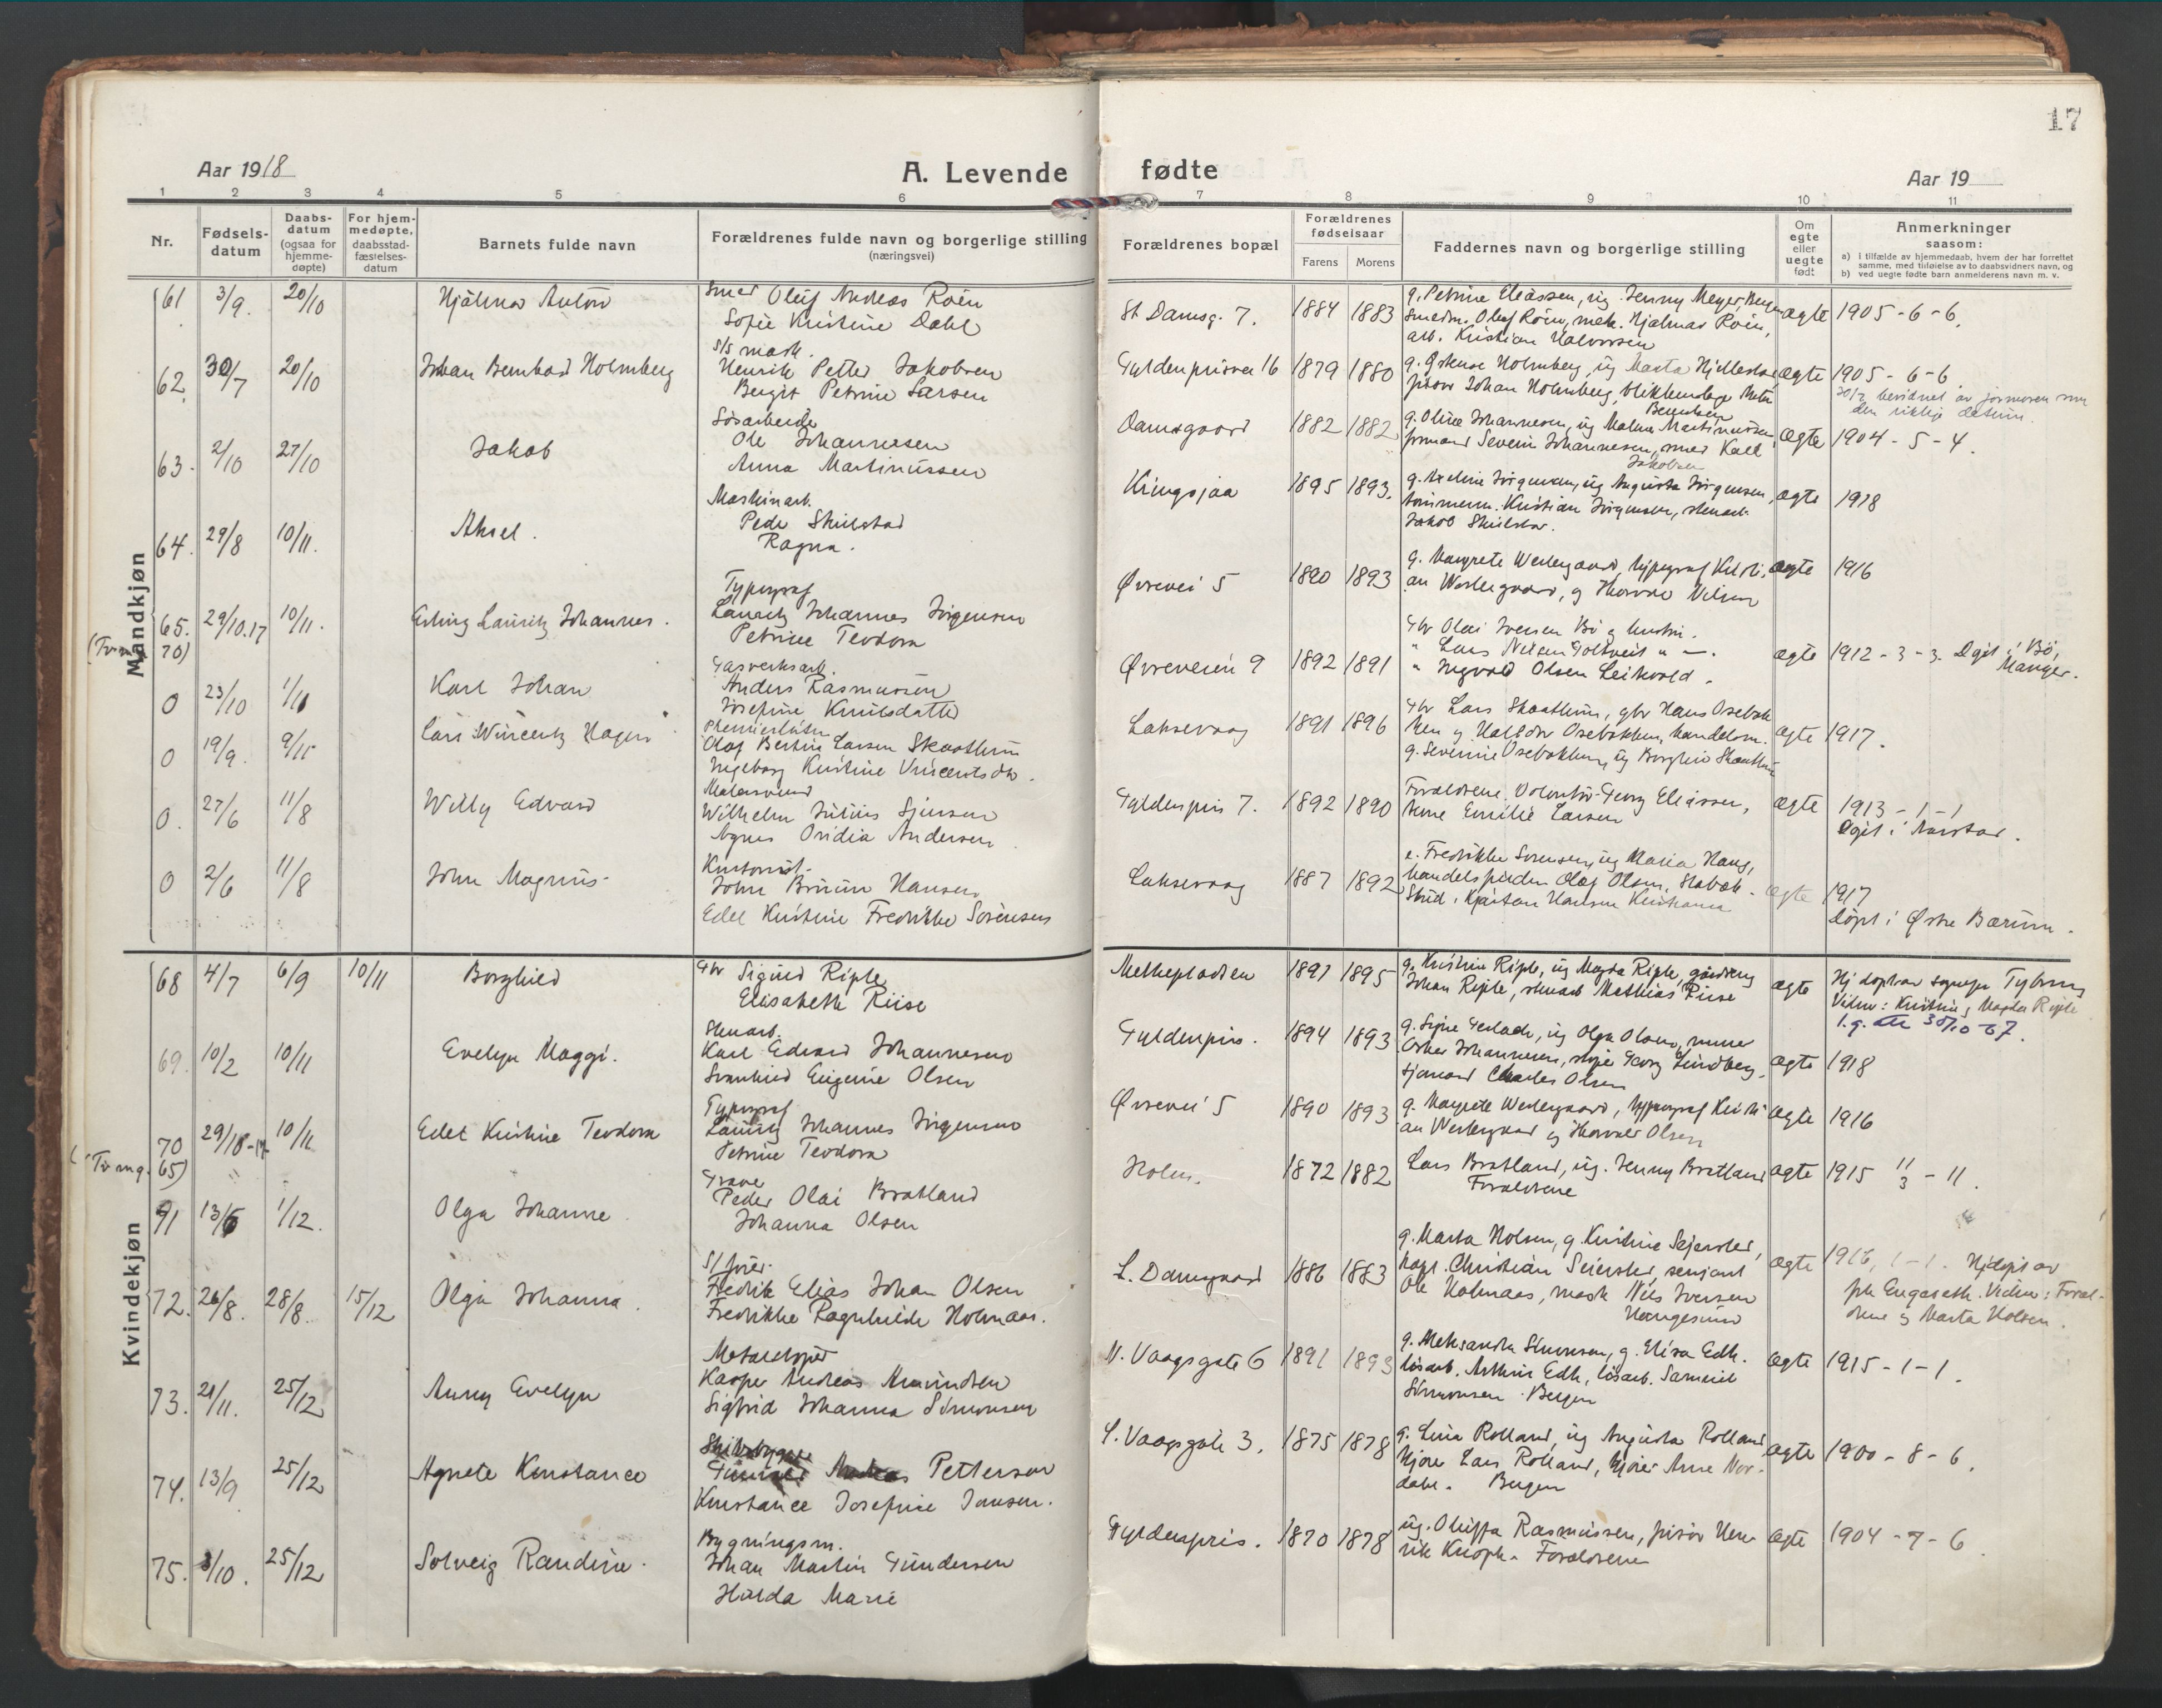 17
Aar 1918
A. Levende fødte
Aar 19
1 2 3 4 5 6 7 8 9 10 11
Nr.
Fødsels-
datum
Daabs-
datum
(ogsaa for
hjemme-
døpte)
For hjem-
medøpte,
daabsstad-
fæstelses-
datum
Barnets fulde navn
Forældrenes fulde navn og borgerlige stilling
(næringsvei)
Forældrenes bopæl
Forældrenes
fødselsaar
Farens Morens
Faddernes navn og borgerlige stilling
Om
egte
eller
uegte
født
Anmerkninger
saasom:
a) i tilfælde av hjemmedaab, hvem der har forrettet
samme, med tilføielse av to daabsvidners navn, og
b) ved uegte fødte barn anmelderens navn m. v.
Mandkjøn
61 3/9. 20/10 Hjalmar Anton
Smed Oluf Andreas Roén
Sofie Kristine Dahl
St. Damsg. 7. 1884 1883
g. Petrine Eliassen, ug. Jenny Meyer, Bergen
Smedm. Oluf Roén, mek. Hjalmar Roén,
arb. Kristian Halvorsen
ægte 1905-6-6.
62. 30/7 20/10 Johan Bernhard Holmberg
S/S mask.
Henrik Petter Jakobsen
Bergit Petrine Larsen
Gyldenprisvei 16 1879 1880
Johan Holmberg, blikkenslager
ægte 1905-6-6.
30/7 bevidnet av jormoren som
den riktige datum.
63. 2/10 27/10 Jakob
Løsarbeider
Ole Johannesen
Anna Martinussen
Damsgaard 1882 1882
g. Oline Johannesen, ug Malena Martinussen,
formand Severin Johannesen, smed Karl
Jakobsen
ægte 1904-5-4.
64. 29/8 10/11. Aksel.
Maskinarb.
Peder Skulstad
Ragna.
Kringsjaa 1895 1893.
g. Axeline Jørgensen, ug Augusta Jørgensen,
tømmerm. Kristian Jørgensen, stenarb.
Jakob Skulstad.
ægte 1918
65. 29/10.17 10/11. Erling Lauritz Johannes.
(Tvilling 70)
Typograf
Lauritz Johannes Jørgensen
Petrine Teodora
Øvrevei 5 1890 1893
g. Margrete Westergaard, typograf Kristi-
an Westergaard, g Thorvald Nilsen
ægte 1916
0 23/10 1/11 Karl Johan
Gasverksarb.
Anders Rasmussen
Josefine Knutsdatter
Øvreveien 9 1892 1891
Gbr Olai Iversen Bø g hustru.
" Lars Nilsen Toltveit " —.
" Ingvald Olsen Leikvold.
ægte 1912-3-3. Døpt i Bø,
Manger.
0 19/9. 9/15 Lars Wincentz Hagen
Olaf Bertin Larsen Skaathun
Ingeborg Kristine Vincentsdtr.
Laksevaag 1891 1896
Gbr Lars Skaathun, gbr Hans Osebak-
ken g Halfdan Osebakken, handelsm.
g. Severine Osebakken, ug Borghild Skaathun
ægte 1917.
0. 27/6 11/8 Willy Edvard
Malersvend
Wilhelm Julius Sjursen
Agnes Ovidia Andersen
Gyldenpris 7. 1892 1890
Forældrene, Volontør Georg Eliassen,
frue Emilie Larsen
ægte 1913-1-1
Døpt i Aarstad.
0 2/6 11/8 John Magnus
Kontorist.
John Bruun Hansen
Edel Kristine Fredrikke Sørensen
Laksevaag 1887 1892
e. Fredrikke Sørensen, ug Maria Haug,
handelsfuldm. Olaf Olsen, Stabæk.
Stud. Kjartan Hansen Kristiania
ægte 1917
Døpt i Østre Bærum.
Kvindekjøn
68 4/7 6/9 10/11 Borghild
Gbr Sigurd Riple,
Elisabeth Riise
Melkepladsen 1891 1895
g. Kristine Riple, ug Magda Riple, gårdeng
Johan Riple, stenarb Mathias Riise
ægte Hj døpt av sognepr Tybring
Vidner: Kristine g Magda Riple
l. g. att 30/10-67.
69. 10/2 10/11 Evelyn Maggi.
Stenarb.
Karl Edvard Johannesen
Svanhild Eugenie Olsen
Gyldenpris. 1894 1893
g. Signe Gerlach, ug Olga Olsen, murer
Oskar Johannesen, Georg Lindberg,
sjømand Charles Olsen
ægte 1918
70 29/10-17 10/11 Edel Kristine Teodora
(Tvilling. 65)
Typograf
Lauritz Johannes Jørgensen
Petrine Teodora
Øvrevei 5 1890 1893
g. Margrete Westergaard, typograf Kristi-
an Westergaard g Thorvald Olsen
ægte 1916
71 13/6 1/12. Olga Johanne.
Graver
Peder Olai Bratland
Johanna Olsen
Holen. 1872 1882
Lars Bratland, ug. Jenny Bratland
Forældrene
ægte 1915 11/3 - 11.
72. 26/8. 28/8. 15/12 Olga Johanna.
S/fører.
Fredrik Elias Johan Olsen
Fredrikke Ragnhilde Holmaas.
L. Damsgaard 1886 1883
g. Marta Holsen, g. Kristine Sejersted,
Kapt. Christian Seiersted, sersjant
Ole Holmaas, mask Nils Iversen
Haugesund
ægte 1916, 1-1. Hj døpt av
pr. Engaseth. Vidner: Foræl-
drene g Marta Holsen.
73. 21/11. 25/12 Anny Evelyn
Metaldreier
Kasper Andreas Amundsen
Sigfrid Johanna Simonsen
N. Vaagsgate 6 1891 1893
g. Aleksandra Simonsen, g. Elisa Edh.
løsarb. Arthur Edh, løsarb. Samuel
Simonsen. Bergen
ægte 1915-1-1.
74. 13/9 25/12 Agnete Konstance
Skibsbygger
Petterson
Konstance Josefine Jansen.
L. Vaagsgate 3. 1875 1878
g. Lina Rolland, ug Augusta Rolland
Kjører Lars Rolland, kjører Arne Nor-
dahl. Bergen
ægte 1900-8-6.
75. 3/10. 25/12 Solveig Randine.
Bygningsm.
Johan Martin Gundersen
Hulda Marie
Gyldenpris. 1870 1878
ug. Oluffa Rasmussen, frisør Hen-
rik Knoph. Forældrene
ægte 1904-7-6